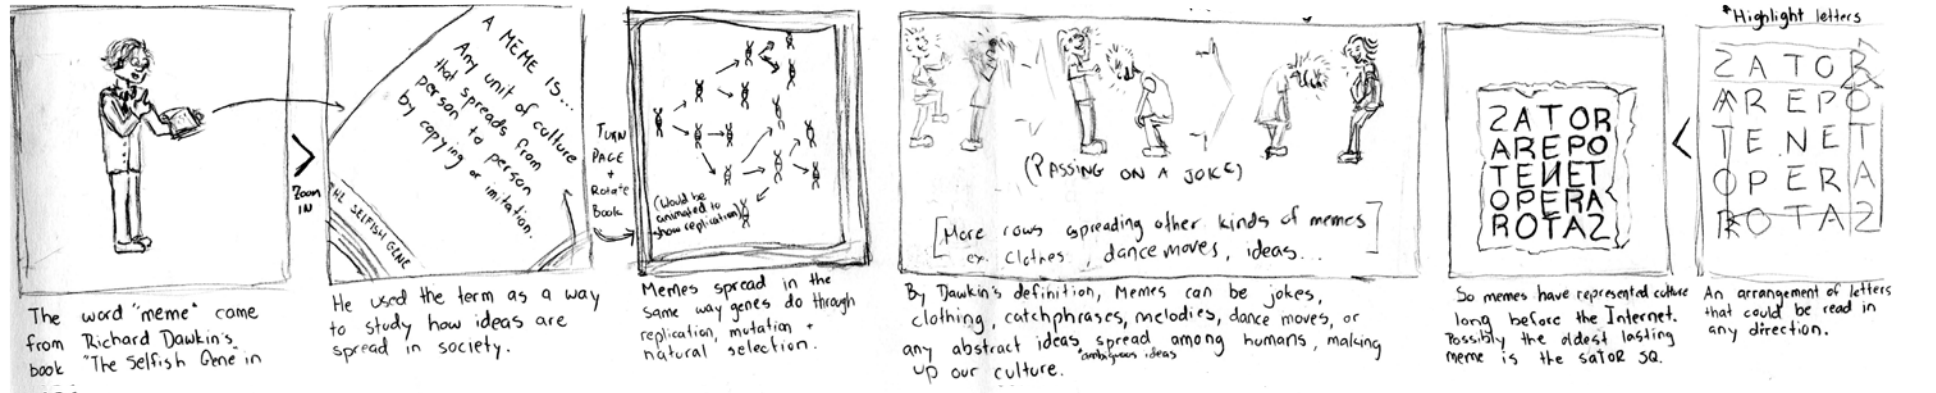 The word "meme" came
from Richard Dawkin's
book "The Selfish Gene" in
Zoom
IN
A MEME IS...
Any unit of culture
that spreads from
person to person
by copying or imitation.
THE SELFISH GENE
He used the term as a way
to study how ideas are
spread in society.
TURN
PAGE
+
Rotate
Book
(Would be
animated to
show replication)
Memes spread in the
same way genes do through
replication, mutation +
natural selection.
(PASSING ON A JOKE)
[More rows spreading other kinds of memes
ex. clothes, dance moves, ideas...]
By Dawkin's definition, Memes can be jokes,
clothing, catchphrases, melodies, dance moves, or
any abstract ideas spread among humans, making
*ambiguous ideas
up our culture.
SATOR
AREPO
TENET
OPERA
ROTAS
So memes have represented culture
long before the Internet.
Possibly the oldest lasting
meme is the SATOR SQ.
*Highlight letters
SATOR
AREPO
TENET
OPERA
ROTAS
An arrangement of letters
that could be read in
any direction.